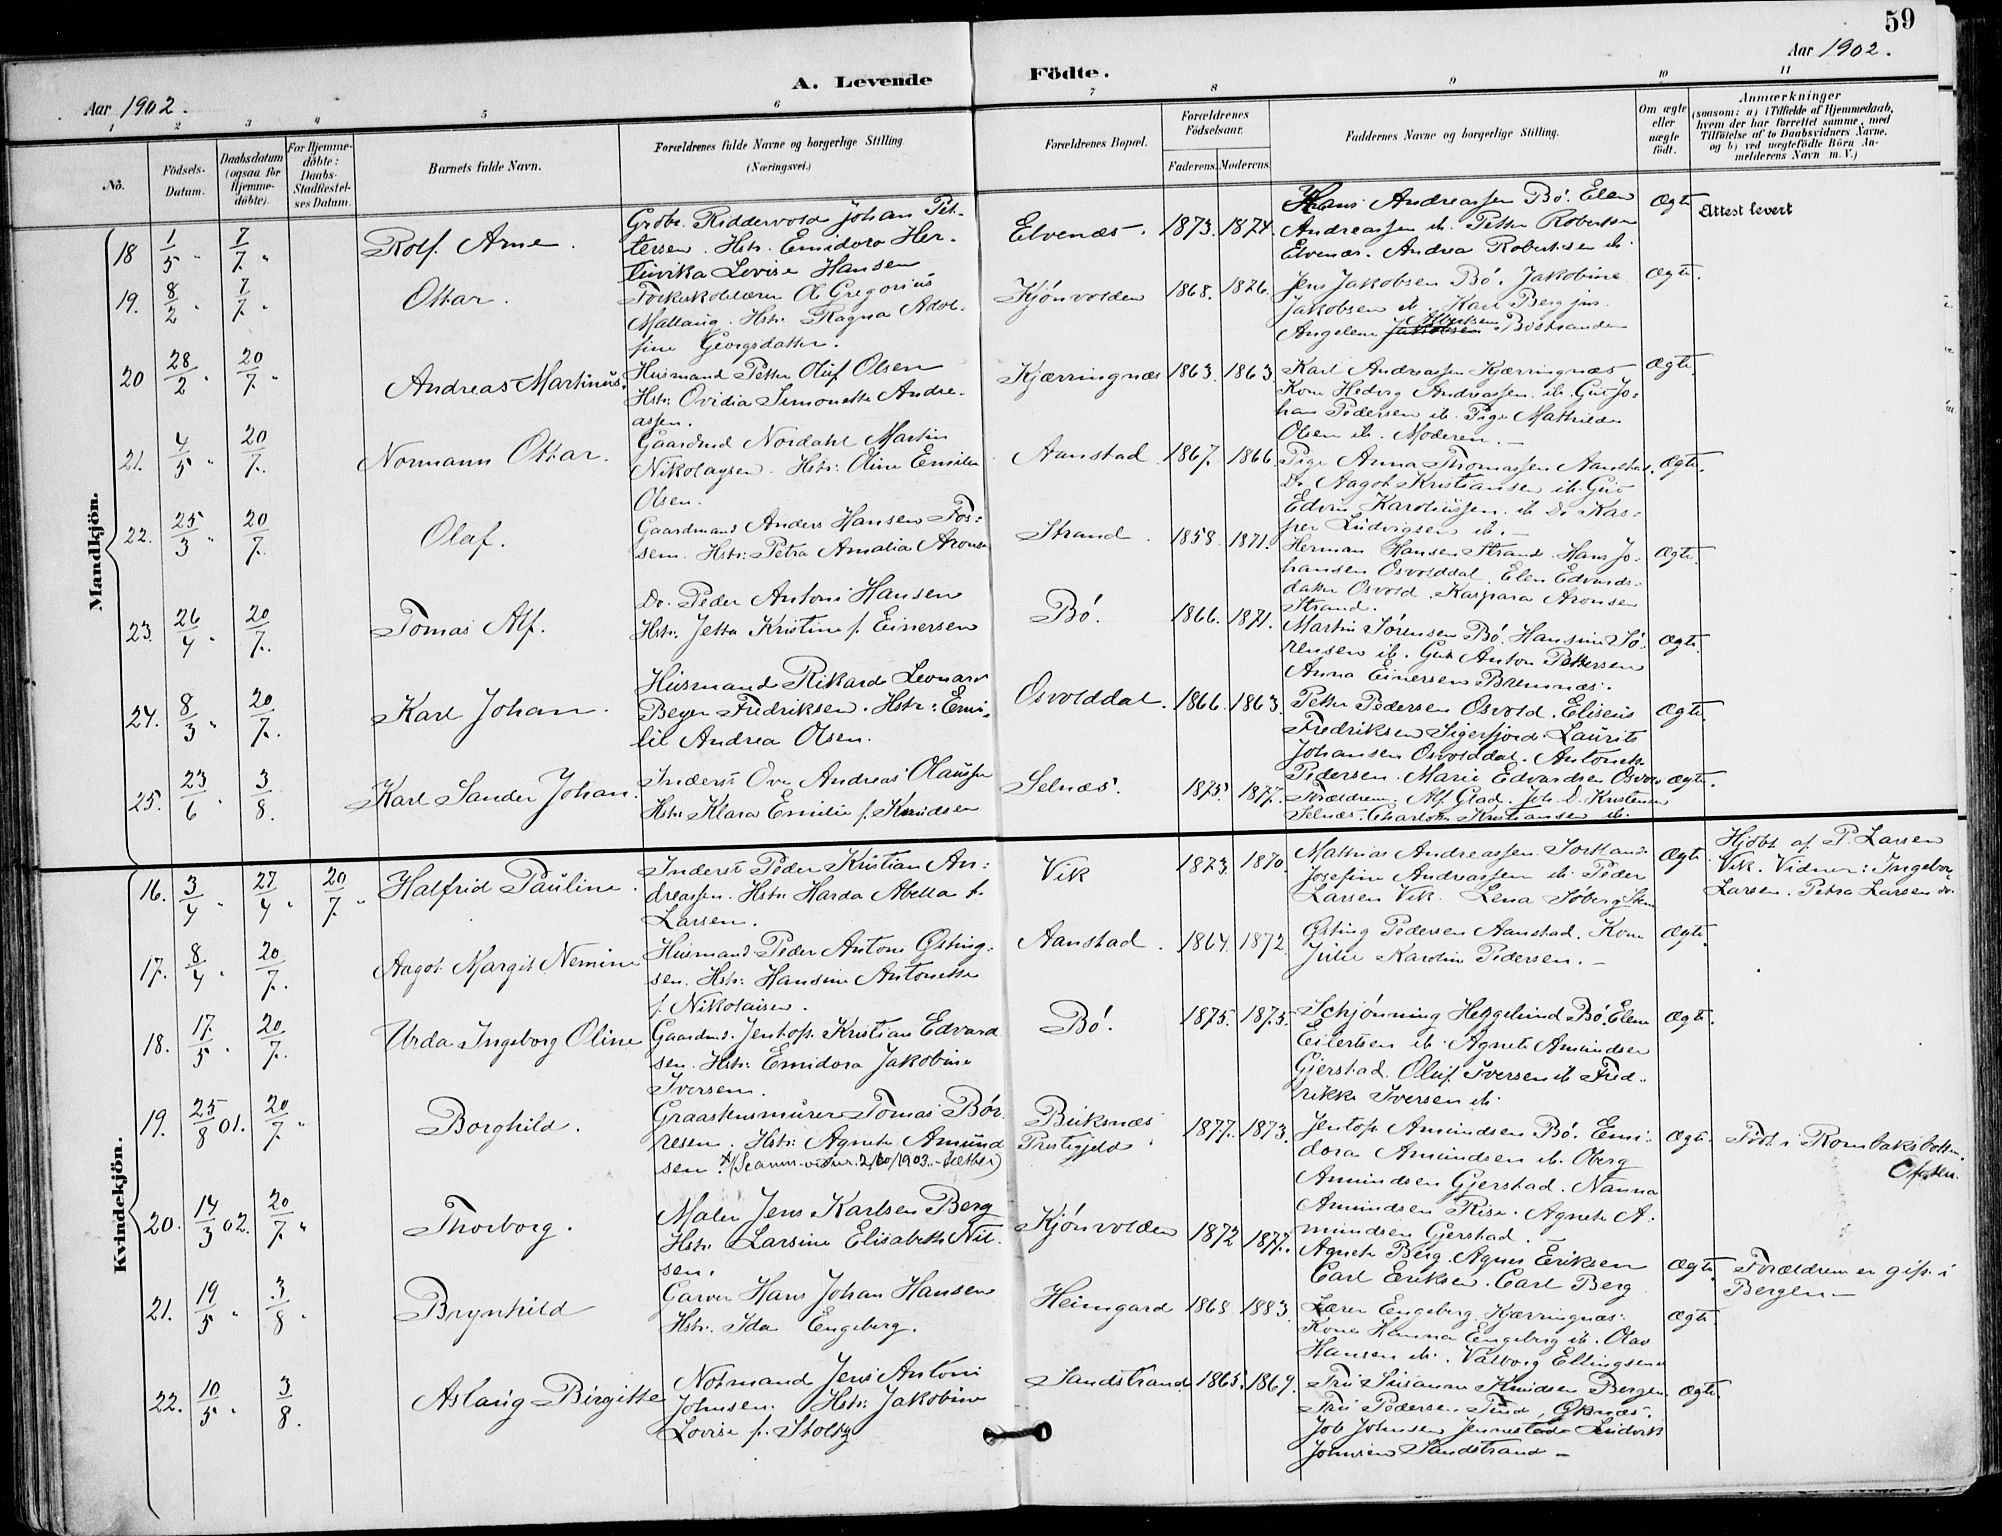 59
Aar 1902.
Aar 1902.
A. Levende Födte.
1 2 3 4 5 6 7 8 9 10 11
No.
Födsels-Datum.
Daabsdatum (ogsaa for Hjemme-döbte).
For Hjemme-döbte: Daabs-Stadfæstel-ses Datum.
Barnets fulde Navn.
Forældrenes fulde Navne og borgerlige Stilling
(Næringsvei.)
Forældrenes Bopæl.
Forældrenes Födselsaar.
Faderens. Moderens.
Faddernes Navne og borgerlige Stilling.
Om ægte eller uægte födt.
Anmærkninger
(saasom: a) i Tilfælde af Hjemmedaab,
hvem der har forrettet samme, med
Tilföielse af to Daabsvidners Navne,
og b) ved uægtefödte Börn An-
melderens Navn m. V.)
Mandkjön.
18 1/5 " 7/7. "
Rolf Arne.
Riddervold Johan Pet-
tersen. Hstr. Emidora Her-
Lovise Hansen
Elvenæs. 1873. 1874.
Hans Andreassen Bö. Elen
Andreassen ib. Petter Robertsen
Elvenæs. Andrea Robertsen ib.
Ægte
Attest levert
19. 8/2 " 7/7. "
Ottar.
Folkeskolelærer Ole Gregorius
Mallaug. Hstr. Ragna Adol-
fine Georgsdatter.
Kjönvolden 1868. 1876.
Jens Jakobsen Bö. Jakobine
Jakobsen ib. Karl Berg jun.
Angelena Albertsen Böstranden
Ægte.
20 28/2 " 20/7. "
Andreas Martinus.
Husmand Petter Oluf Olsen
Hstr. Ovidia Simonette Andre-
assen.
Kjærringnæs 1863. 1863
Karl Andreassen Kjærringnæs
Kone Hedvig Andreassen ib. Gut Jo-
han Pedersen ib. Pige Mathilde
Olsen ib. Moderen. —
Ægte.
21. 4/5 " 20/7.
Normann Ottar.
Gaardmd Nordahl Martin
Nikolaysen. Hstr. Oline Emilie
Olsen.
Aanstad 1867. 1866.
Pige Anna Thomassen Aanstad.
Do. Aagot Kristiansen ib. Gut
Edvin Karoliussen ib Do Kas-
per Ludvigsen ib. —
Ægte.
22. 25/3 " 20/7.
Olaf.
Gaardmand Anders Hansen Fos-
sem. Hstr. Petra Amalia Aronsen
Strand. 1858. 1871.
Herman Hansen Strand. Hans Jo-
hansen Osvolddal. Elen Edvards-
datter Osvold. Kaspara Aronsen
Strand.
Ægte.
23. 26/4 " 20/7.
Tomas Alf.
Do. Peder Antoni Hansen
Hstr. Jetta Kristine f. Einersen
Bö. 1866. 1871.
Martin Sörensen Bö. Hansine Sö-
rensen ib. Gut Anton Pettersen
Anna Einersen Bremnæs.
Ægte.
24. 8/3 " 20/7.
Karl Johan.
Husmand Rikard Leonard
Beyer Fredriksen. Hstr: Emi-
lie Andrea Olsen.
Osvolddal. 1866. 1863.
Petter Pedersen Osvold. Eliseus
Fredriksen Sigerfjord. Laurits
Johansen Osvolddal. Antonette
Pedersen. Marie Edvardsen Osvold
Ægte.
25. 23/6 " 3/8.
Karl Sander Johan.
Inderst Ove Andreas Olaussen
Hstr. Klara Emilie f. Knudsen
Selnæs. 1875. 1877.
Forældrene. Alf Glad. Joh. D. Kristensen
Selnæs. Charlotte Kristiansen ib.
Ægte.
Kvindekjön.
16. 3/4 " 27/4 " 20/7. "
Halfrid Pauline.
Inderst Peder Kristian An-
dreassen. Hstr. Harda Abella f.
Larsen.
Vik 1873. 1870.
Mathias Andreassen Jortland
Josefine Andreassen ib. Peder
Larsen Vik. Lena Söberg
Ægte
Hjdöbt af P. Larsen
Vik. Vidner: Ingeborg
Larsen. Petra Larsen do.
17. 8/4 " 20/7.
Aagot Margit Nemine
Husmand Peder Antoni Østing-
sen. Hstr. Hansine Antonette
f. Nikolaisen.
Aanstad. 1864. 1872.
Østing Pedersen Aanstad. Kone
Julie Karoline Pedersen. —
Ægte.
18. 17/5 " 20/7.
Urda Ingeborg Oline
Gaardmd. Jentoft Kristian Edvard
sen. Hstr. Emidora Jakobine
Iversen.
Bö. 1875. 1875.
Schjönning Heggelund Bö. Elen
Eilertsen ib. Agnete Amundsen
Gjerstad. Oluf Iversen ib Fred-
rikke Iversen ib.
Ægte.
19. 25/8 01. 20/7. "
Borghild.
Graastensmurer Tomas Bör-
resen. Hstr. Agnete Amund
sen
Buksnæs
Prestegjeld. 1877. 1873.
Jentoft Amundsen Bö. Emi-
dora Amundsen ib. Oberg
Amundsen Gjerstad. Nanna
Amundsen Rise. Agnete A-
mundsen Gjerstad.
Ægte.
Födt i Rombaksbotten
Ofoten.
20. 14/3 02. 20/7. "
Thorborg.
Maler Jens Karlsen Berg
Hstr. Larsine Elisabeth Nil-
sen.
Kjönvolden 1872 1877.
Agnete Berg. Agnes Eriksen
Carl Eriksen. Carl Berg
Ægte.
Forældrene er gift i
Bergen —
21. 19/5 " 3/8 "
Brynhild
Garver Hans Johan Hansen
Hstr. Ida Engeberg.
Heimgard 1868 1883.
Lærer Engeberg Kjærringnæs.
Kone Hanna Engeberg ib. Olav
Hansen ib. Valborg Ellingsen
Ægte.
22. 10/5 " 3/8.
Aslaug Birgitte
Notmand Jens Antoni
Johnsen. Hstr. Jakobine
Lovise f. Stoltz
Sandstrand. 1865. 1869.
Fru Susanna Knudsen Bergen
Fru Pedersen Øksnæs.
Job Johnsen Jennestad Ludvik
Johnsen Sandstrand —
Ægte.